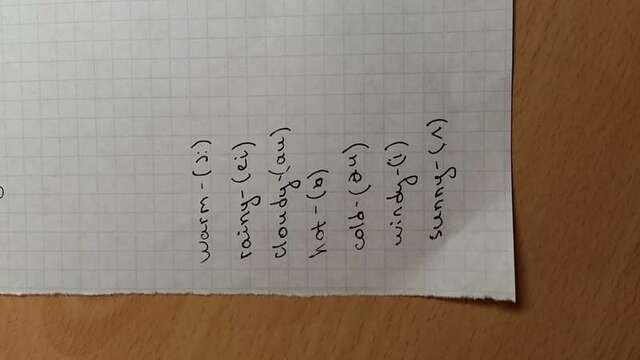 warm-(ɔ:)
rainy-(ei)
cloudy-(au)
hot-(b)
cold-(əu)
windy-(i)
sunny-(ʌ)